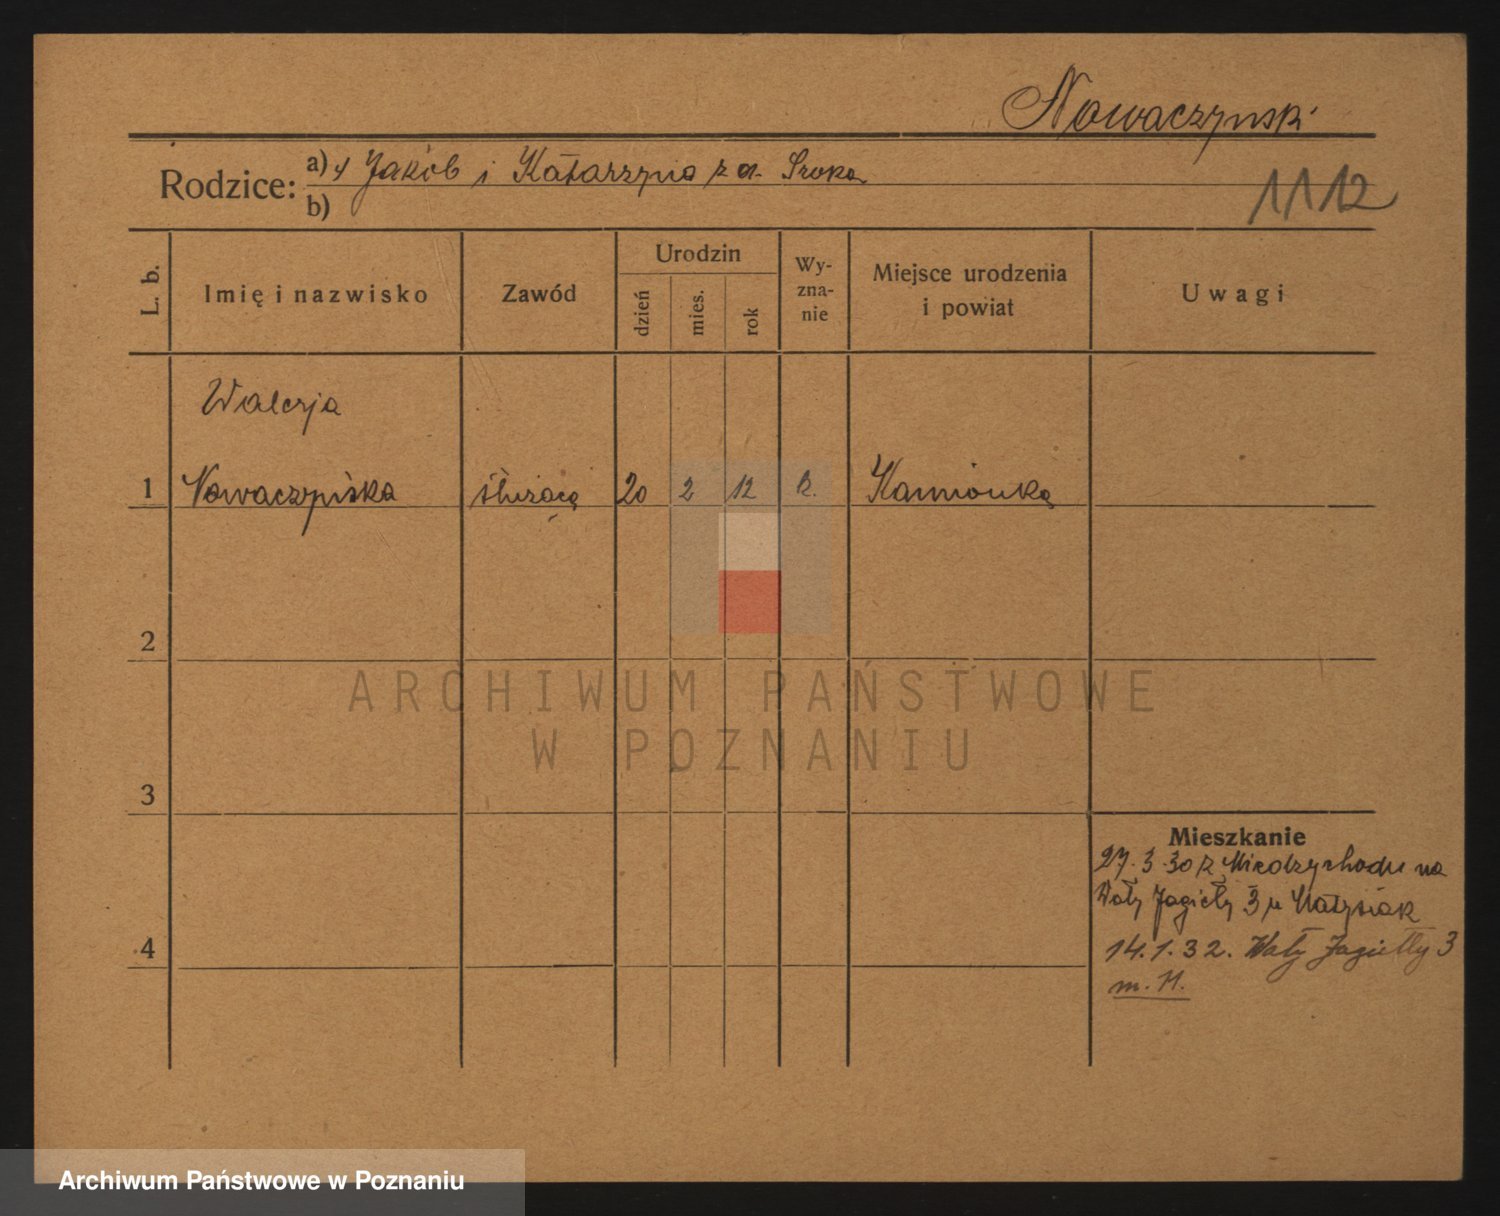 Nowaczyński
Rodzice: a) Jakób i Katarzyna z d. Sroka
b)
1112
L. b. Imię i nazwisko Zawód Urodzin dzień mies. rok Wy-zna-nie Miejsce urodzenia i powiat Uwagi
Walerja
1 Nowaczyńska służąca 20 2 12 k. Kamionka
2
ARCHIWUM PAŃSTWOWE
W POZNANIU
3
Mieszkanie
27.3.30 z Międzychodu na
Wały Jagiełły 3 u Matysiak
4
14.1.32. Wały Jagiełły 3
m. 11.
Archiwum Państwowe w Poznaniu